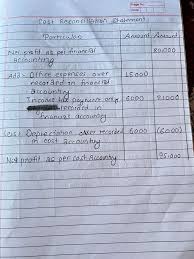 Page No.
Date
Cost Reconciliation Statement
Particulars Amount Amount
Net profit as per financial 80,000
accounting
Add:- Office expenses over 15000
recorded in financial
accounting
Income tax payment only 6000 21000
recorded in
financial accounting
Less:- Depreciation over recorded 6000 (6000)
in cost accounting
Net profit as per cost Accounting 95000